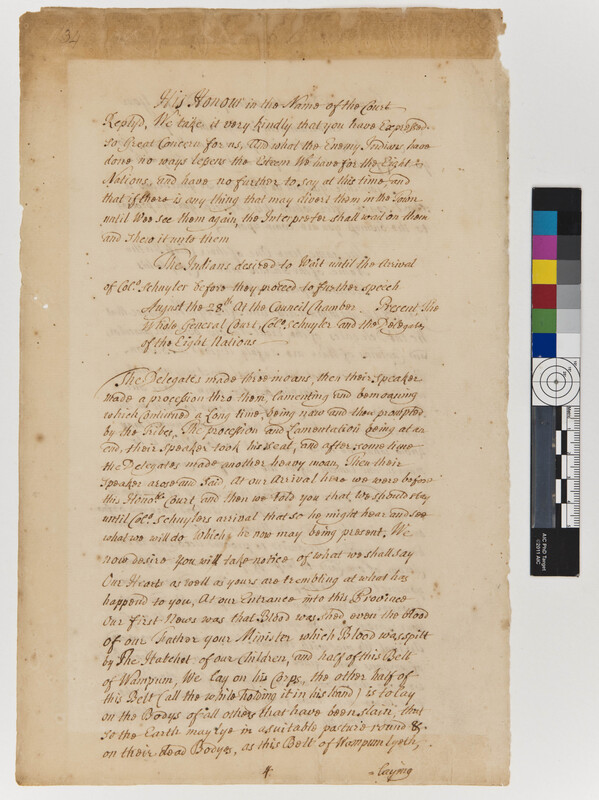 134
His Honour in the Name of the Court
Replyd, We take it very kindly that you have Expressed
so Great Concern for us, And what the Enemy Indians have
done no ways lessens the Esteem We have for the Eight
Nations, and have no further to say at this time, and
that if there is any thing that may divert them in the Town
until Wee see them again, the Interpreter shall wait on them
and Shew it unto them
The Indians desired to Wait until the Arival
of Colo. Schuyler before they proceed to further speech
August the 28th. At the Council Chamber. Present, The
Whole General Court, Colo. Schuyler and the Delegates
of the Eight Nations
The Delegates made three moans, then their Speaker
made a procession thro them, lamenting and bemoaning
which Continued a Long time, being now and then prompted
by the Tribes, The procession and Lamentation being at an
end, their speaker took his seat, and after some time
the Delegates made another heavy moan, Then their
speaker arose and Said, At our Arrival here we were before
this Honoble. Court, and then we told you that We should stay
until Colo. Schuylers arrival that so he might hear and see
what we will do Which he now may being present. We
now desire You will take notice of what we shall say
Our Hearts as well as yours are trembling at what has
happend to you, At our Entrance into this Province
Our first News was that Blood was shed, even the blood
of our Father your Minister which Blood was spilt
by The Hatchet of our Children, and half of this Belt
of Wampum, We lay on his Corps, the other half of
this Belt (all the while holding it in his hand) is to lay
on the Bodys of all others that have been slain, that
so the Earth may lye in a suitable posture round &
on their dead Bodyes, as this Belt of Wampum lyeth,
4.
- Laying
AIC PhD Target
©2011 AIC